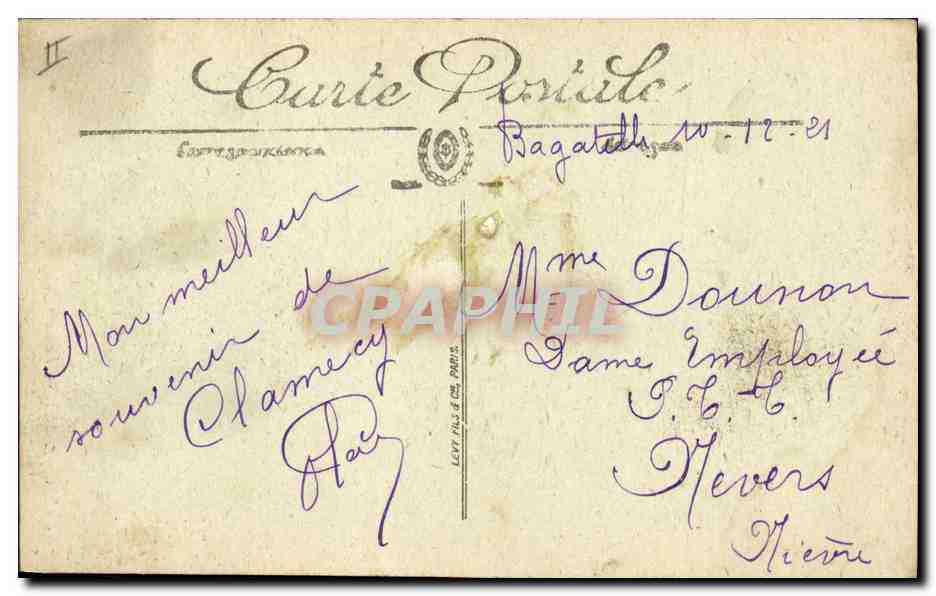 II
Carte Postale
Correspondance
Bagatelle 10-12-21
Mon meilleur
souvenir de
Clamecy
Mme Dounon
Dame Employée
P. T. T.
Nevers
Nièvre
LEVY FILS & Cie, PARIS.
CPAPHIL